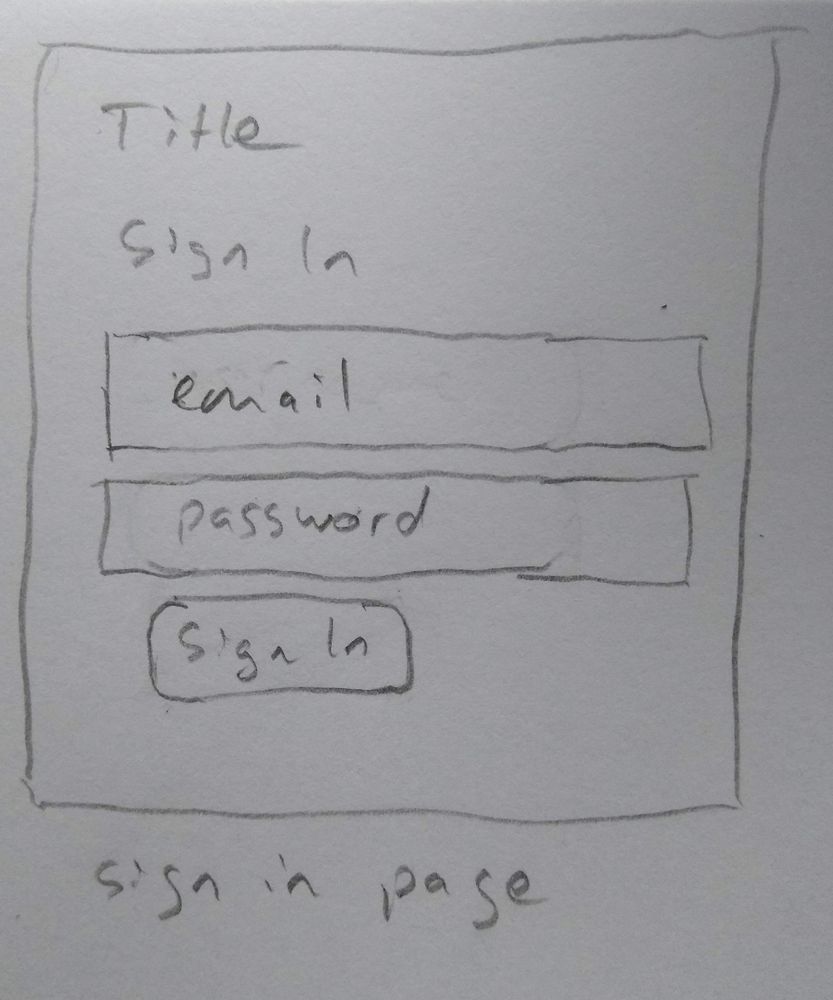 Title
Sign In
email
password
Sign In
sign in page